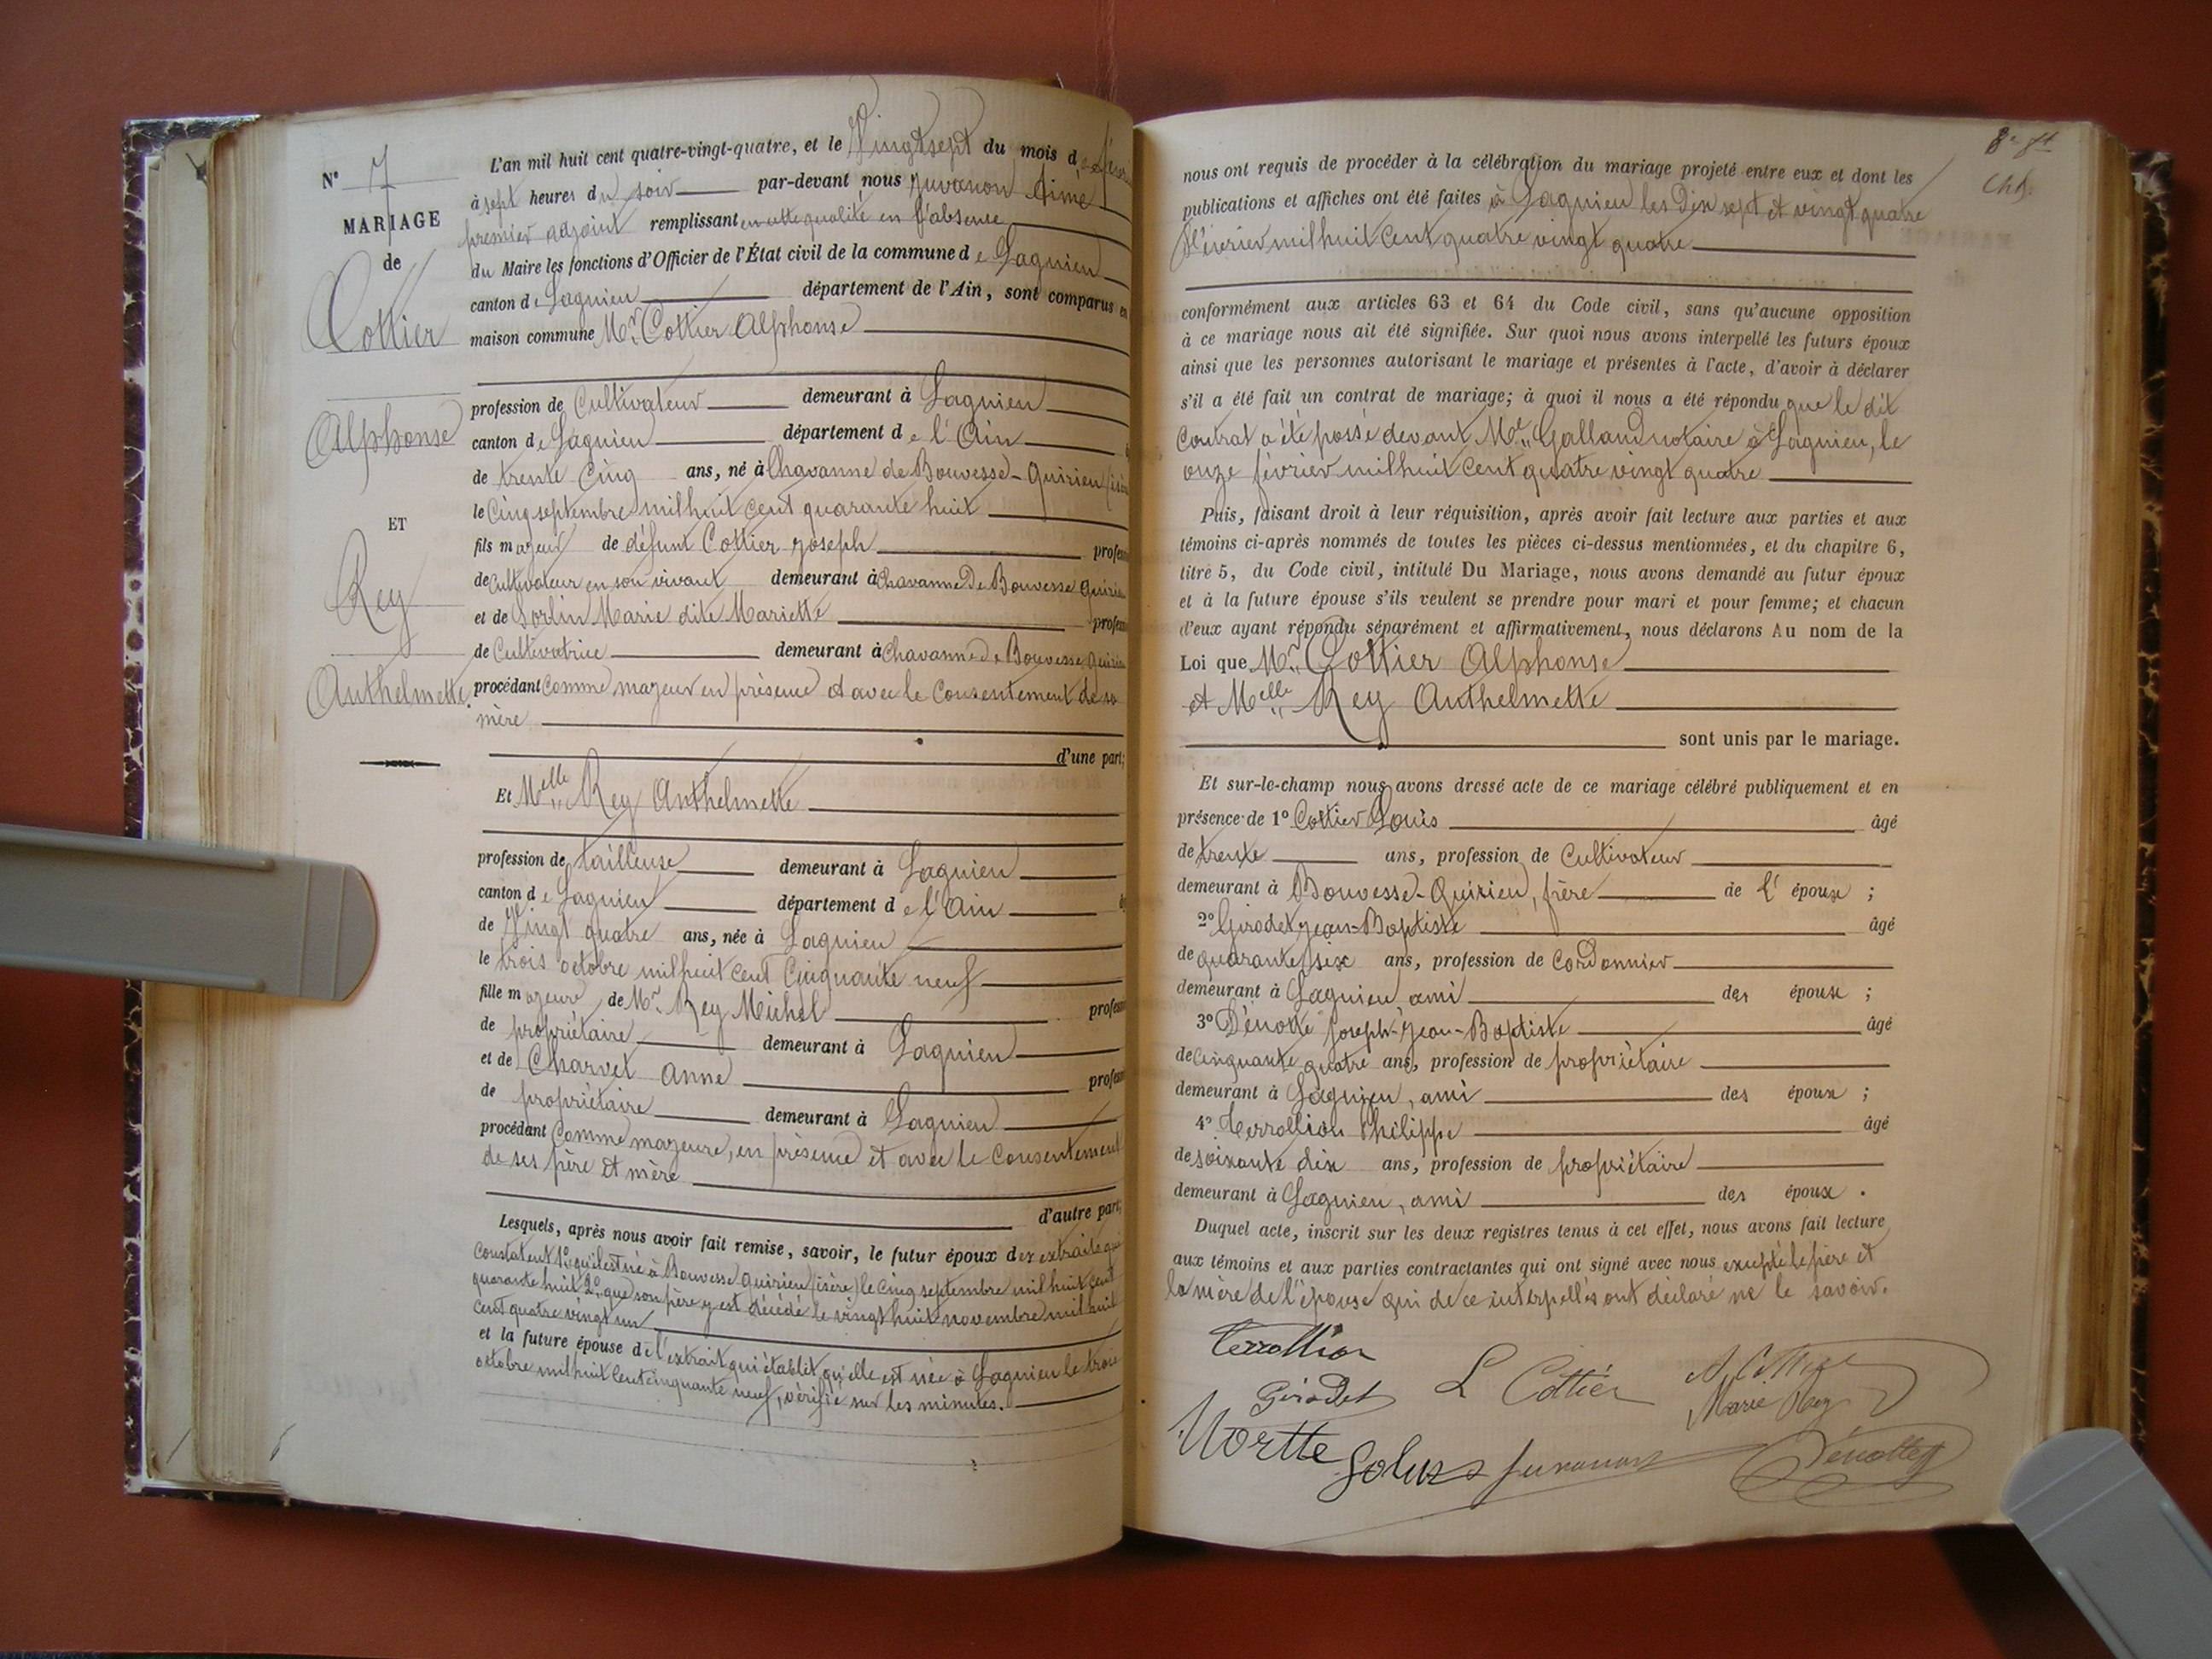 N° 7
MARIAGE
de
Cottier
Alphonse
ET
Rey
Anthelmette.
L'an mil huit cent quatre-vingt-quatre, et le Vingt sept du mois de février
à sept heures du soir par-devant nous Juvanon Aimé
premier adjoint remplissant en cette qualité en l'absence
du Maire les fonctions d'Officier de l'État civil de la commune de Lagnieu
canton de Lagnieu département de l'Ain, sont comparus en
maison commune Mr. Cottier Alphonse
profession de Cultivateur demeurant à Lagnieu
canton de Lagnieu département de l'Ain
de trente cinq ans, né à Chavanne de Bouvesse-Quirieu (isère
le Cinq septembre mil huit cent quarante huit
fils majeur de défunt Cottier Joseph profess
de Cultivateur en son vivant demeurant à Chavanne De Bouvesse Quirieu
et de Sorlin Marie dite Mariette profess
de Cultivatrice demeurant à Chavanne de Bouvesse Quirieu
procédant Comme majeur en présence et avec le Consentement de sa
mère
d'une part;
Et Melle Rey Anthelmette
profession de tailleuse demeurant à Lagnieu
canton de Lagnieu département de l'Ain
de Vingt quatre ans, née à Lagnieu
le trois octobre mil huit cent Cinquante neuf
fille majeure de Mr. Rey Michel profess
de propriétaire demeurant à Lagnieu
et de Charvet Anne profess
de propriétaire demeurant à Lagnieu
procédant Comme majeure, en présence et avec le Consentement
de ses père et mère
d'autre part;
Lesquels, après nous avoir fait remise, savoir, le futur époux des extraits qui
Constatent 1° qu'il est né à Bouvesse Quirieu (isère) le cinq septembre mil huit cent
quarante huit 2° que son père y est décédé le vingt huit novembre mil huit
cent quatre vingt un
et la future épouse de l'extrait qui établit qu'elle est née à Lagnieu le trois
octobre mil huit cent cinquante neuf, vérifié sur les minutes.
nous ont requis de procéder à la célébration du mariage projeté entre eux et dont les
publications et affiches ont été faites à Lagnieu les Dix sept et vingt quatre
février mil huit Cent quatre vingt quatre
conformément aux articles 63 et 64 du Code civil, sans qu'aucune opposition
à ce mariage nous ait été signifiée. Sur quoi nous avons interpellé les futurs époux
ainsi que les personnes autorisant le mariage et présentes à l'acte, d'avoir à déclarer
s'il a été fait un contrat de mariage; à quoi il nous a été répondu que le dit
Contrat a été passé devant Me. Galland notaire à Lagnieu, le
onze février mil huit Cent quatre vingt quatre
Puis, faisant droit à leur réquisition, après avoir fait lecture aux parties et aux
témoins ci-après nommés de toutes les pièces ci-dessus mentionnées, et du chapitre 6,
titre 5, du Code civil, intitulé Du Mariage, nous avons demandé au futur époux
et à la future épouse s'ils veulent se prendre pour mari et pour femme; et chacun
d'eux ayant répondu séparément et affirmativement, nous déclarons Au nom de la
Loi que Mr. Cottier Alphonse
et Melle Rey Anthelmette
sont unis par le mariage.
Et sur-le-champ nous avons dressé acte de ce mariage célébré publiquement et en
présence de 1° Cottier Louis âgé
de trente ans, profession de Cultivateur
demeurant à Bouvesse-Quirieu, frère de l'époux ;
2° Girodet Jean-Baptiste âgé
de quarante six ans, profession de Cordonnier
demeurant à Lagnieu ami des époux ;
3° Dénotte Joseph-Jean-Baptiste âgé
de cinquante quatre ans, profession de propriétaire
demeurant à Lagnieu, ami des époux ;
4° Terrollion Philippe âgé
de soixante dix ans, profession de propriétaire
demeurant à Lagnieu, ami des époux.
Duquel acte, inscrit sur les deux registres tenus à cet effet, nous avons fait lecture
aux témoins et aux parties contractantes qui ont signé avec nous excepté le père et
la mère de l'épouse qui de ce interpellés ont déclaré ne le savoir.
Terrollion
Girodet L Cottier A. Cottier
Marie Rey
Juvanon Dénotte